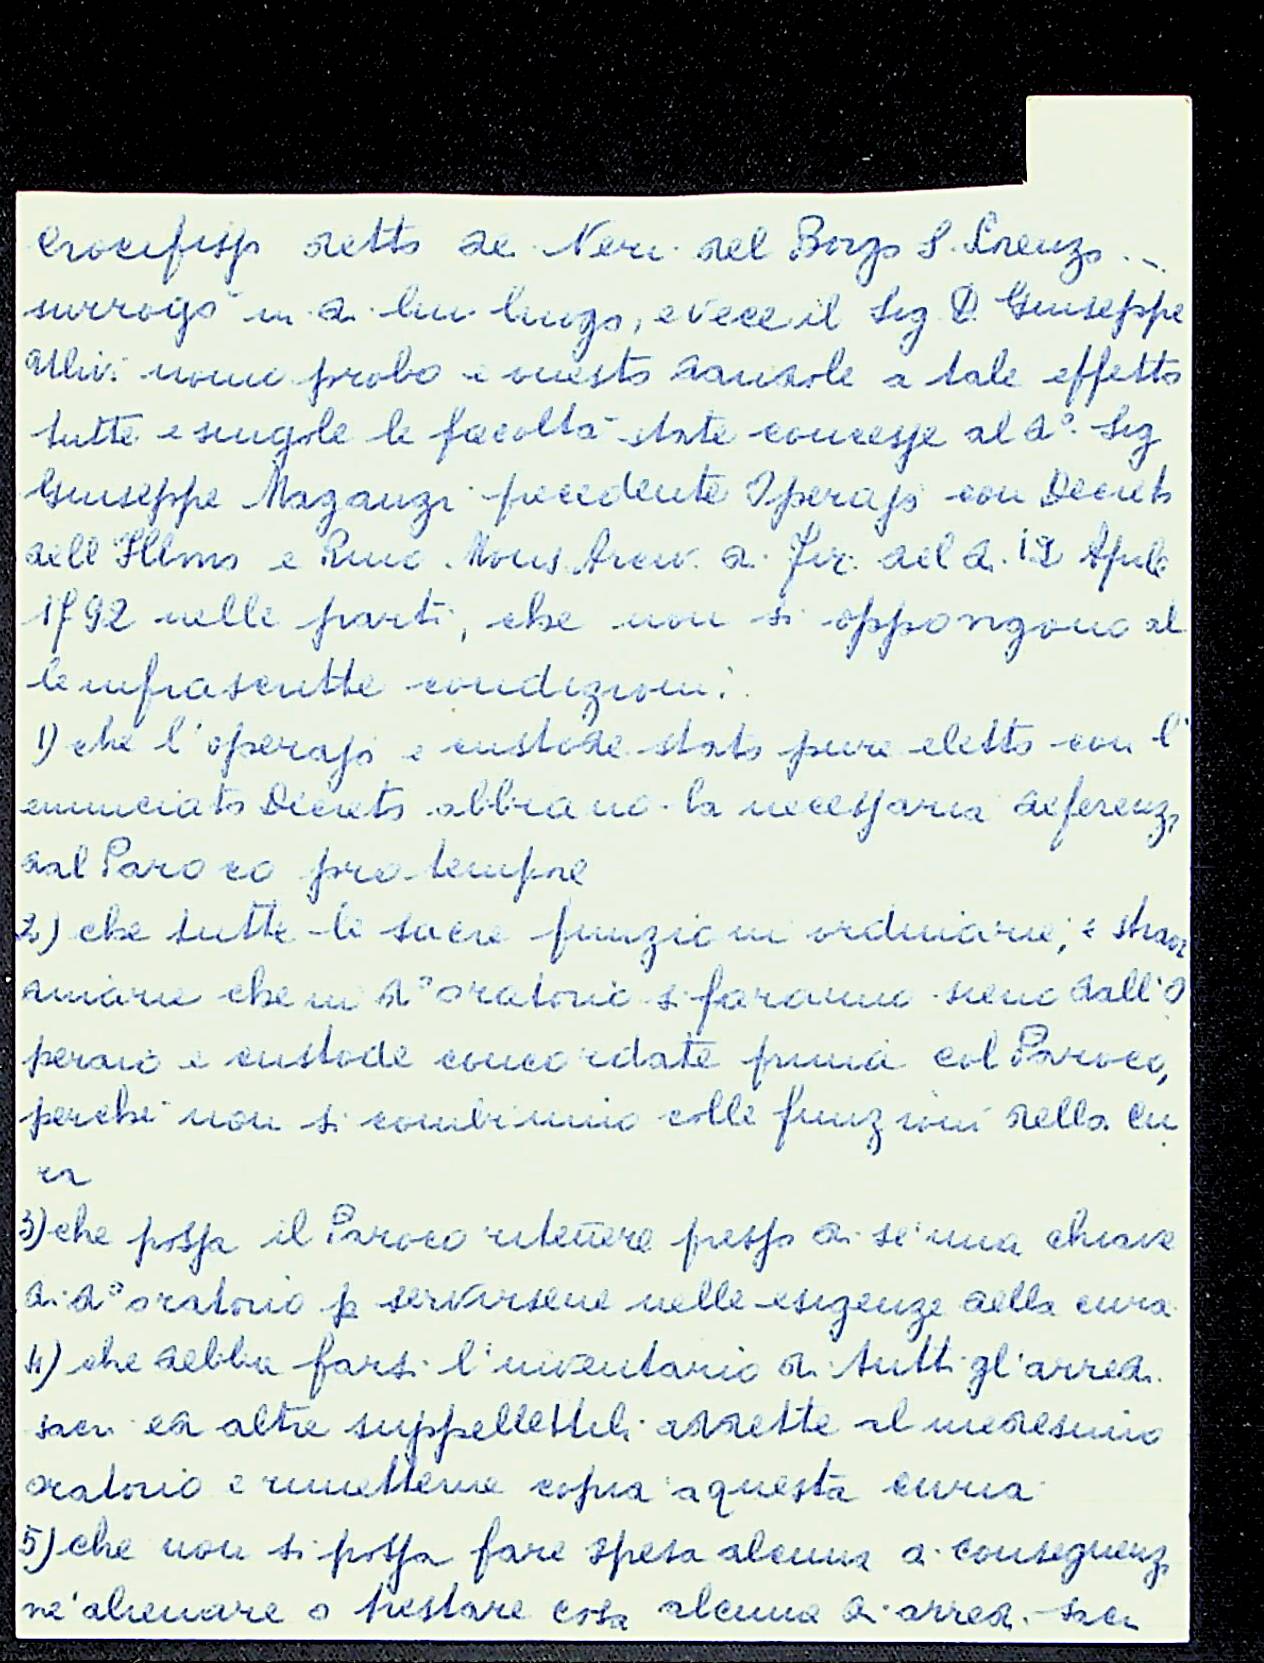 Crocifisso detto de Neri del Borgo S. Lorenzo ...
surrogò in di lui luogo, e vece il Sig D. Giuseppe
Ulivi uomo probo e onesto dandole a tale effetto
tutte e singole le facoltà state concesse al d°. Sig
Giuseppe Magangi precedente Operajo con Decreto
dell'Illmo e Rmo. Mons. Arciv. di Fir. del d. 12 Aprile
1792 nelle parti, che non si oppongono al
le infrascritte condizioni:
1) che l'operajo e custode stato pure eletto con l'
enunciato Decreto abbiano la necessaria deferenz,
dal Paroco pro-tempore
2) che tutte le sacre funzioni ordinarie, e straor
dinarie che in d° oratorio si faranno sieno dall'O
peraio e custode concordate prima col Paroco,
perché non si combinino colle funzioni della Cu
ra
3) che possa il Paroco ritenere presso di sé una chiave
di d° oratorio p servirsene nelle esigenze della cura
4) che debba farsi l'inventario di tutti gl'arredi
sacri ed altre suppellettili addette al medesimo
oratorio e rimetterne copia a questa curia
5) che non si possa fare spesa alcuna di conseguenz,
né alienare o prestare cosa alcuna di arredi sacri